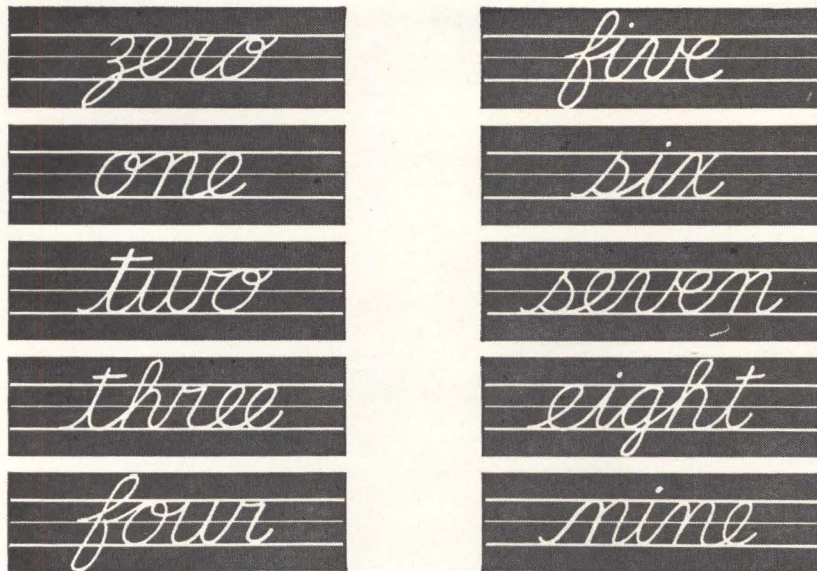 zero
one
two
three
four
five
six
seven
eight
nine